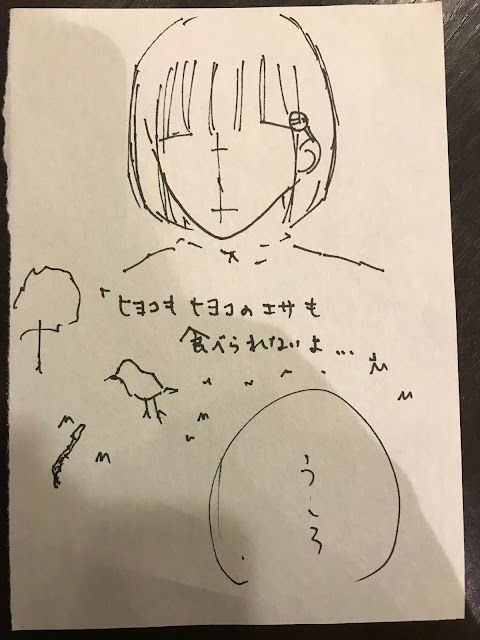 「ヒヨコも ヒヨコのエサも
食べられないよ...
うしろ